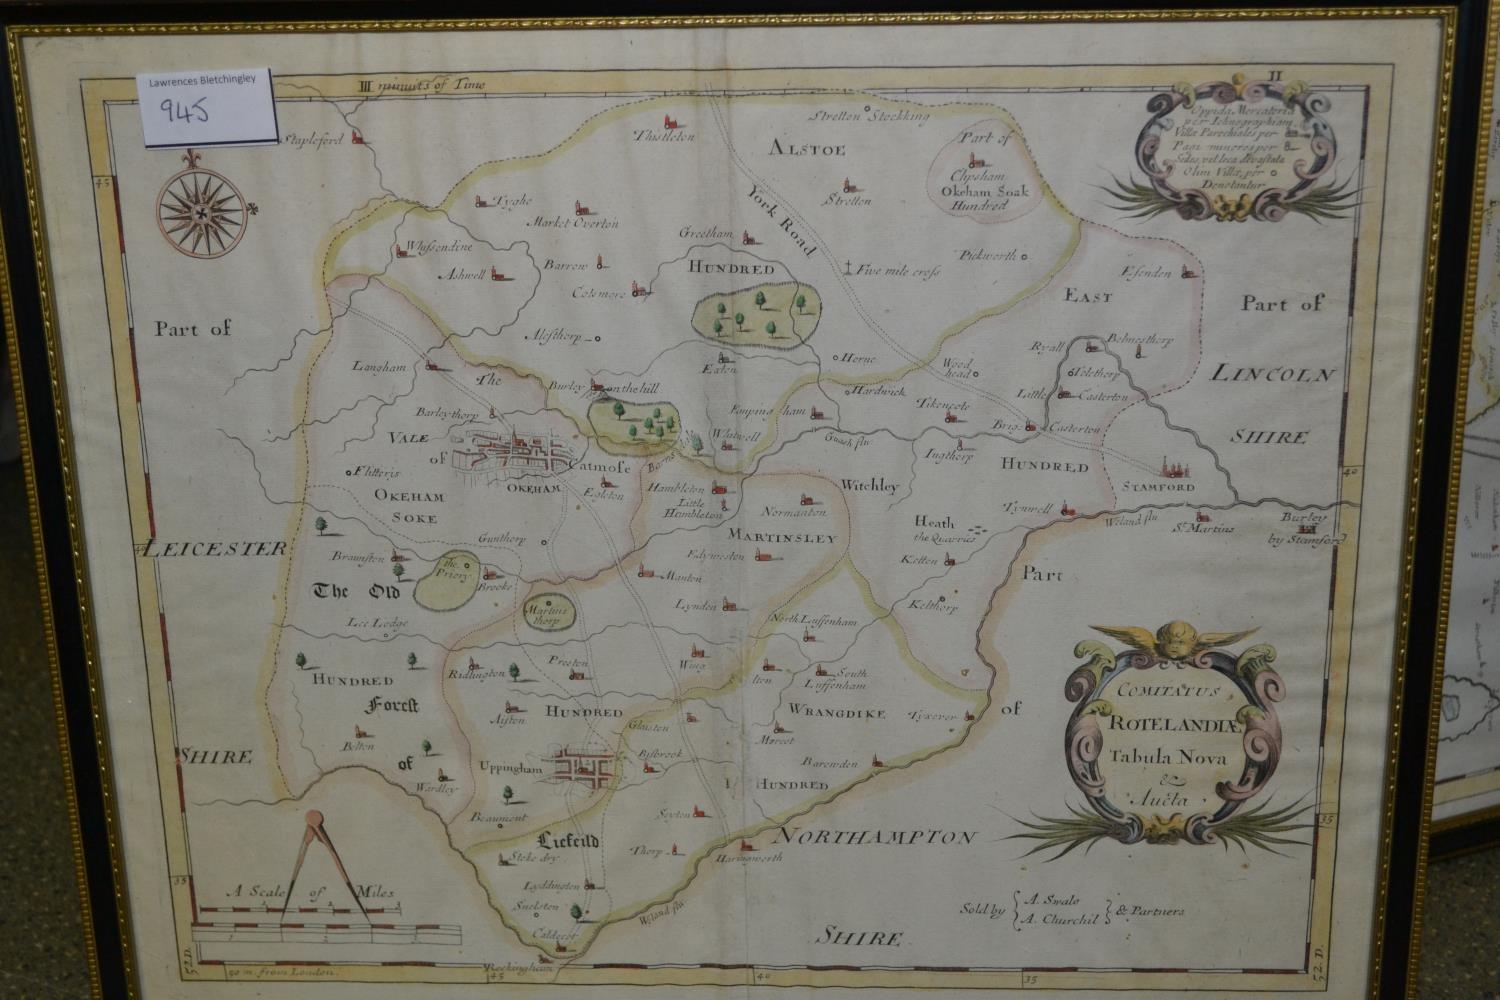 Lawrences Bletchingley
945
III minuits of Time
II
Oppida Mercatoria
per Ichnographiam
Villæ Parochiales per
Pagi minores per
Sedes, vel loca devastata
Olim Villæ, per
Denotantur
Stapleford
Thistleton
Stretton Stockking
ALSTOE
Part of
Clipsham
Okeham Soak
Hundred
45
Tyghe
Market Overton
York Road
Stretton
Greetham
Whissendine
Ashwell
Barrow
HUNDRED
Five mile cross
Pickworth
Essenden
Cotsmore
EAST
Part of
Part of
LINCOLN
SHIRE
Alesthorp
Horne
Ryall
Belmesthorp
Langham
The
Burley on the hill
Exton
Wood
head
Tolethorp
Hardwick
Little
Casterton
Barleythorp
Empingham
Tikencote
VALE
of
Whitwell
Guash flu
Brig
Casterton
Catmose
Ingthorp
HUNDRED
STAMFORD
40
Flitteris
OKEHAM
SOKE
OKEHAM
Egleton
Hambleton
Little
Hambleton
Normanton
Witchley
Heath
the Quarries
Tynwell
Weland flu
St Martins
Burley
by Stamford
Gunthorp
MARTINSLEY
LEICESTER
Braunston
The
Priory
Brooke
Edyweston
Manton
Ketton
Part
The Old
Martins
thorp
Lynden
Kelthorp
Lee Lodge
North Luffenham
HUNDRED
Ridlington
Preston
Wing
South
Luffenham
COMITATUS
ROTELANDIÆ
Tabula Nova
&
Aucta
Forest
Aiston
HUNDRED
Glaiston
WRANGDIKE
Tixover
of
Belton
Morcot
SHIRE
of
Uppingham
Bisbrook
Barowden
Wardley
HUNDRED
Beaumont
Seyton
35
Liefeild
NORTHAMPTON
Stoke dry
Thorp
Haringworth
35
A Scale of Miles
Lyddington
Snelston
Weland flu
Sold by
A. Swale
A. Churchil
& Partners
Caldecot
SHIRE
52. D.
90 m. from London.
Rockingham
45
40
35
52. D.